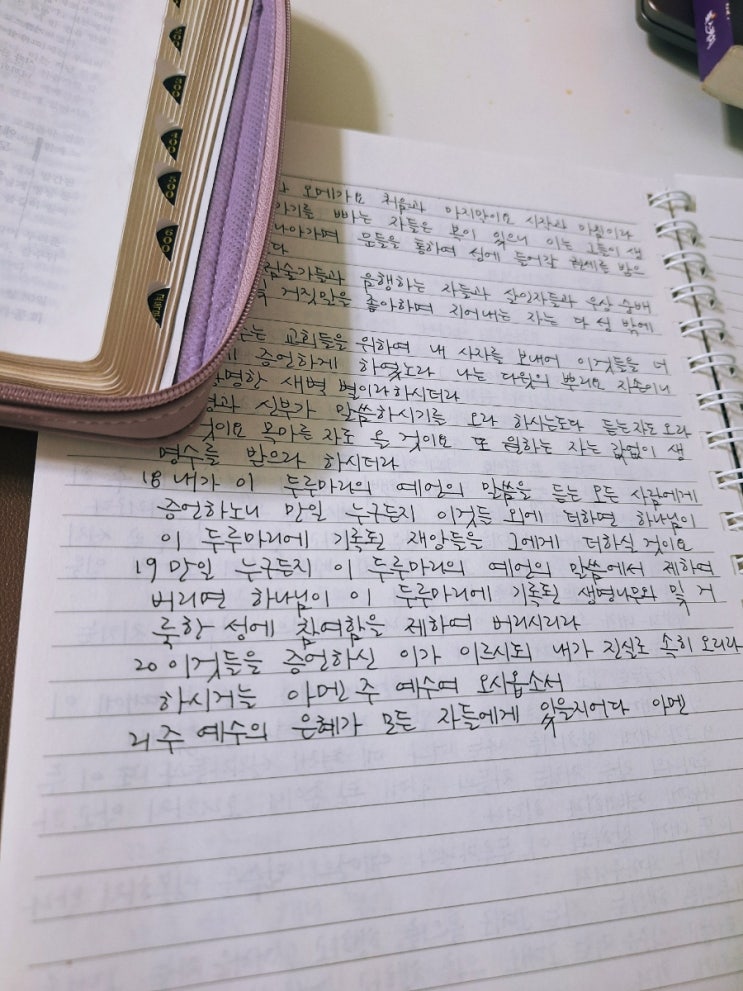 300
400
500
600
오메가요 처음과 마지막이요 시작과 마침이라
빠는 자들은 복이 있으니 이는 그들이 생
나아가며 문들을 통하여 성에 들어갈 권세를 받으
다
점술가들과 음행하는 자들과 살인자들과 우상 숭배
및 거짓말을 좋아하며 지어내는 자는 다 성 밖에
는 교회들을 위하여 내 사자를 보내어 이것들을 너
증언하게 하였노라 나는 다윗의 뿌리요 자손이니
새벽 별이라 하시더라
과 신부가 말씀하시기를 오라 하시는도다 듣는 자도 오라
것이요 목마른 자도 올 것이요 또 원하는 자는 값없이 생
명수를 받으라 하시더라
18 내가 이 두루마리의 예언의 말씀을 듣는 모든 사람에게
증언하노니 만일 누구든지 이것들 외에 더하면 하나님이
이 두루마리에 기록된 재앙들을 그에게 더하실 것이요
19 만일 누구든지 이 두루마리의 예언의 말씀에서 제하여
버리면 하나님이 이 두루마리에 기록된 생명나무와 및 거
룩한 성에 참여함을 제하여 버리시리라
20 이것들을 증언하신 이가 이르시되 내가 진실로 속히 오리라
하시거늘 아멘 주 예수여 오시옵소서
21 주 예수의 은혜가 모든 자들에게 있을지어다 아멘